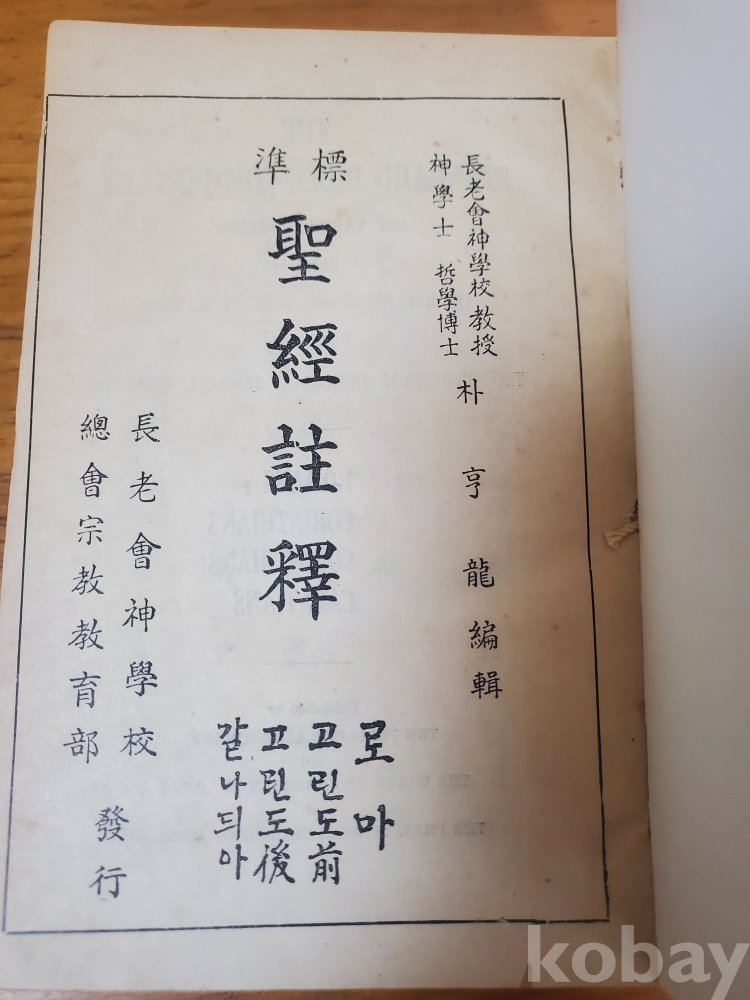 長老會神學校敎授
神學士 哲學博士
朴亨龍編輯
標準
聖經註釋
로마
고린도前
고린도後
갈나듸아
長老會神學校
總會宗敎敎育部
發行
kobay